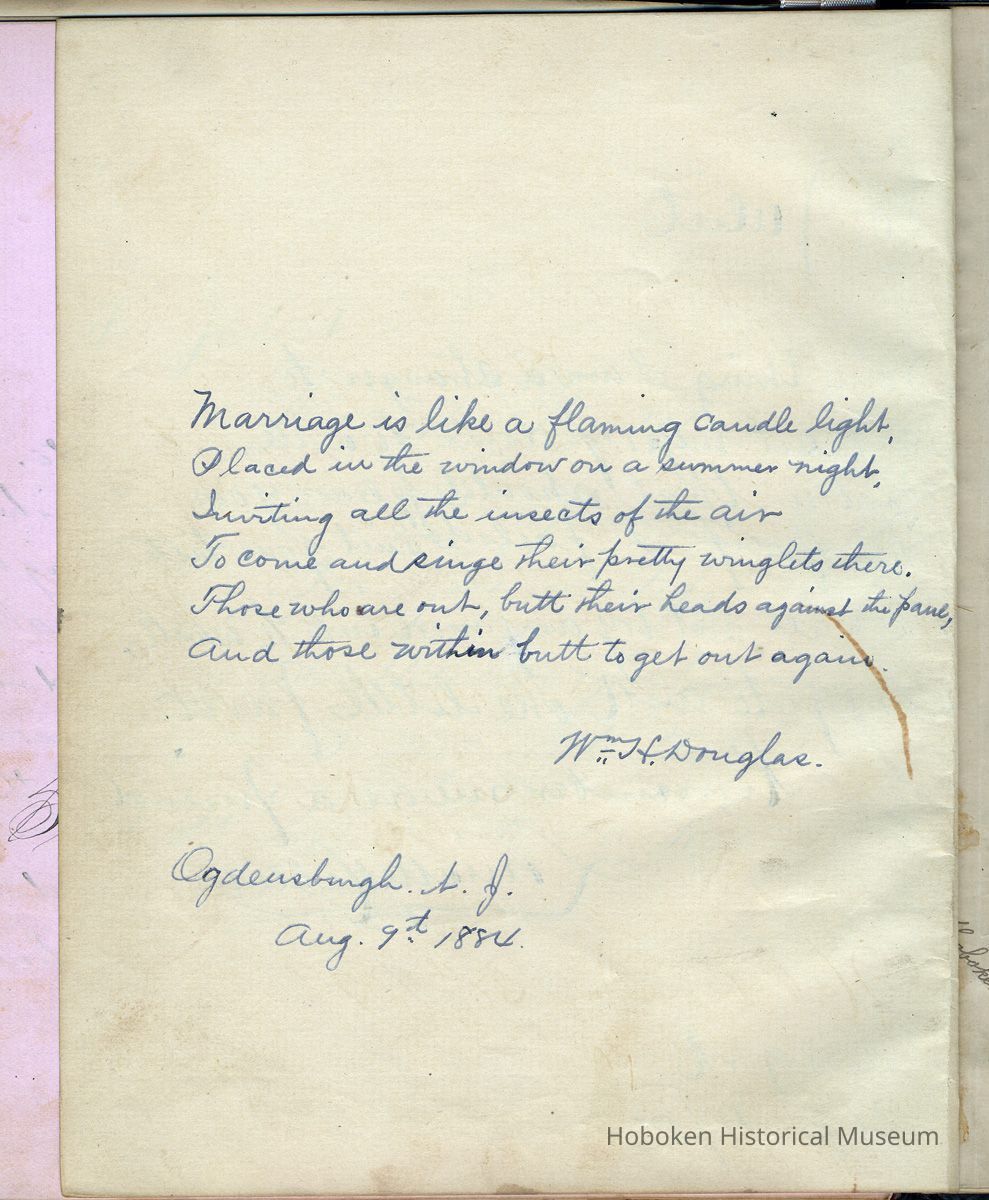 Marriage is like a flaming candle light,
Placed in the window on a summer night,
Inviting all the insects of the air
To come and singe their pretty winglets there.
Those who are out, butt their heads against the pane,
And those within butt to get out again.
Wm H. Douglas.
Ogdensburgh. N. J.
Aug. 9th 1884.
Hoboken Historical Museum